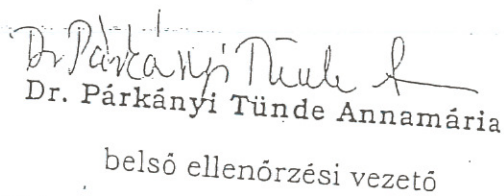 Dr Párkányi Tünde A
Dr. Párkányi Tünde Annamária
belső ellenőrzési vezető